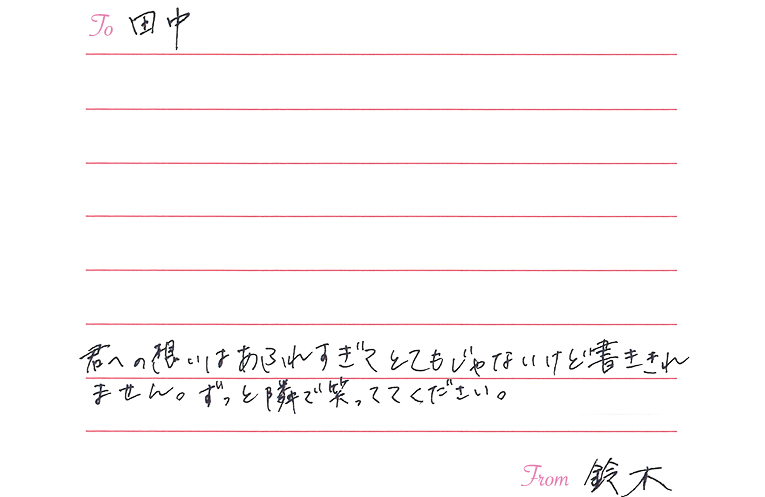 To 田中
君への想いはあふれすぎてとてもじゃないけど書ききれ
ません。ずっと隣で笑っててください。
From 鈴木